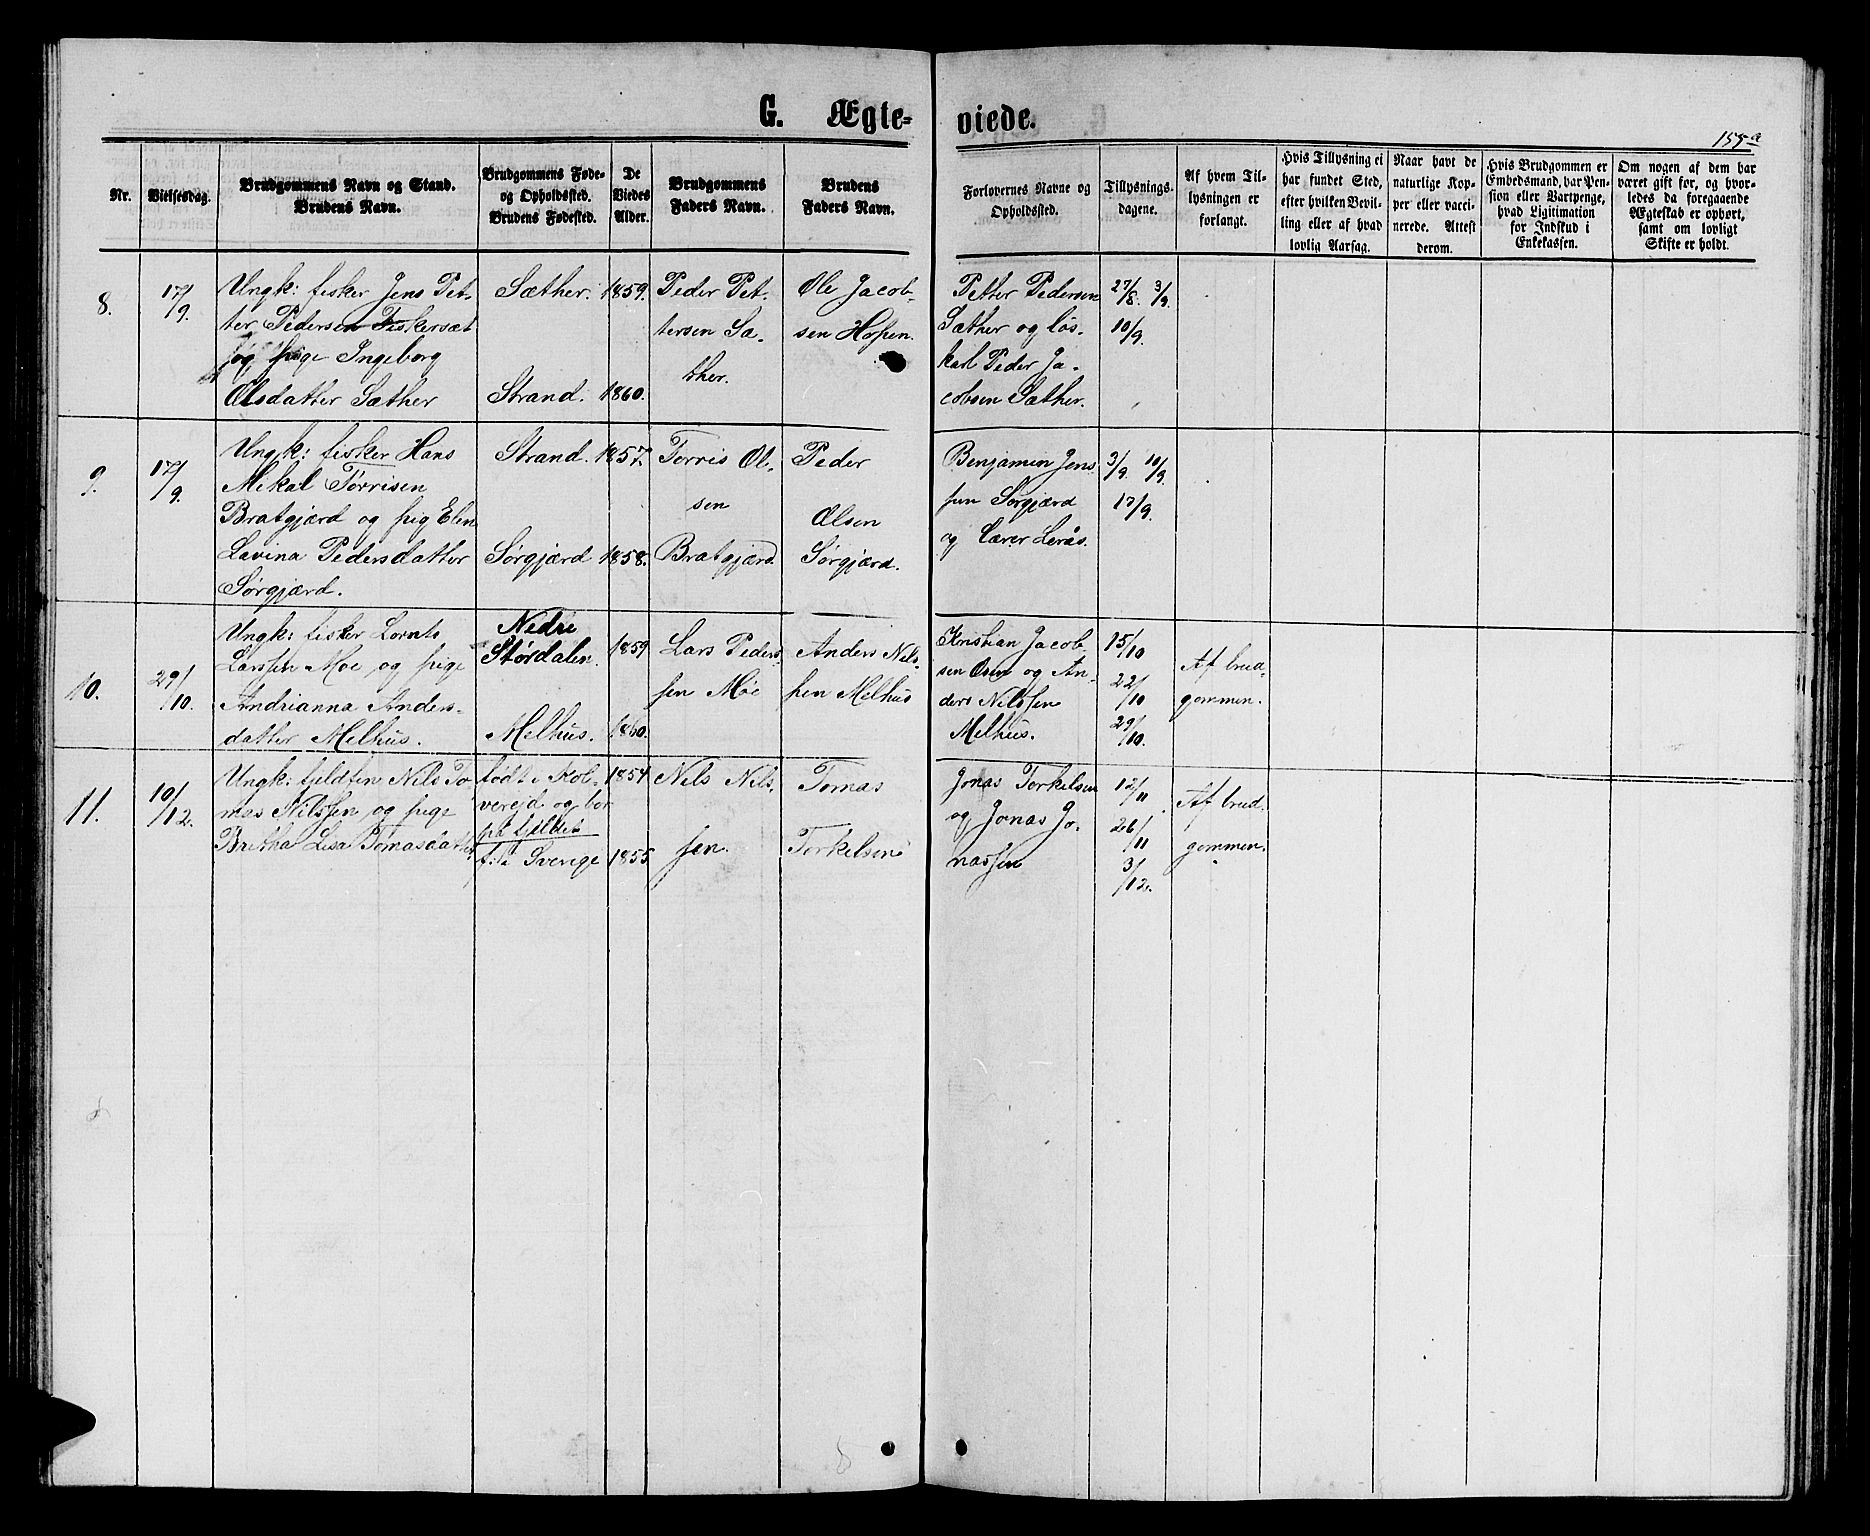 G. Ægte-
viede.
155 a
Nr.
Vielsesdag.
Brudgommens Navn og Stand.
Brudens Navn.
Brudgommens Føde-
og Opholdssted.
Brudens Fødested.
De
Viedes
Alder.
Brudgommens
Faders Navn.
Brudens
Faders Navn.
Forlovernes Navne og
Opholdssted.
Tillysnings-
dagene.
Af hvem Til-
lysningen er
forlangt.
Hvis Tillysning ei
har fundet Sted,
efter hvilken Bevil-
ling eller af hvad
lovlig Aarsag.
Naar havt de
naturlige Kop-
per eller vacci-
nerede. Attest
derom.
Hvis Brudgommen er
Embedsmand, har Pen-
sion eller Vartpenge,
hvad Ligitimation
for Indskud i
Enkekassen.
Om nogen af dem har
været gift før, og hvor-
ledes da foregaaende
Ægteskab er ophørt,
samt om lovligt
Skifte er holdt.
8.
17/9.
Ungk: fisker Jens Pet-
ter Pedersen Fiskersæt
og pige Ingeborg
Olsdatter Sæther
Sæther.
Strand.
1859.
1860.
Peder Pet-
tersen Sæ-
ther.
Ole Jacob-
sen Hopen.
Petter Pedersen
Sæther og løs-
karl Peder Ja-
cobsen Sæther.
27/8. 3/9.
10/9.
9.
17/9.
Ungk: fisker Hans
Mekal Tørrisen
Bratgjærd og pig Elen
Lavina Pedersdatter
Sørgjærd.
Strand.
Sørgjærd
1857.
1858.
Torris Ol-
sen
Bratgjærd.
Peder
Olsen
Sørgjærd.
Benjamin Jens
sen Sørgjærd
og Lærer Lerås.
3/9. 10/9.
17/9.
10.
29/10.
Ungk: fisker Lornts
Larssen Moe og pige
Andrianna Anders-
datter Melhus.
Nedre
Størdalen.
Melhus.
1859
1860.
Lars Peders-
sen Moe
Anders Nils-
sen Melhus
Kristian Jacob
sen Osen og An-
ders Nilssen
Melhus.
15/10
22/10
29/10.
Af brud-
gommen.
11.
10/12.
Ungk: fjeldfin Nils To
mas Nilssen og pige
Bretha Lisa Tomasdatter
født i Kol-
vereid og bor
på fjeldet
f. i Sverige
1854
1855
Nils Nils-
sen.
Tomas
Torkelsen
Jonas Torkelsen
og Jonas Jo-
nassen
12/11
26/11
3/12.
Af brud-
gommen.